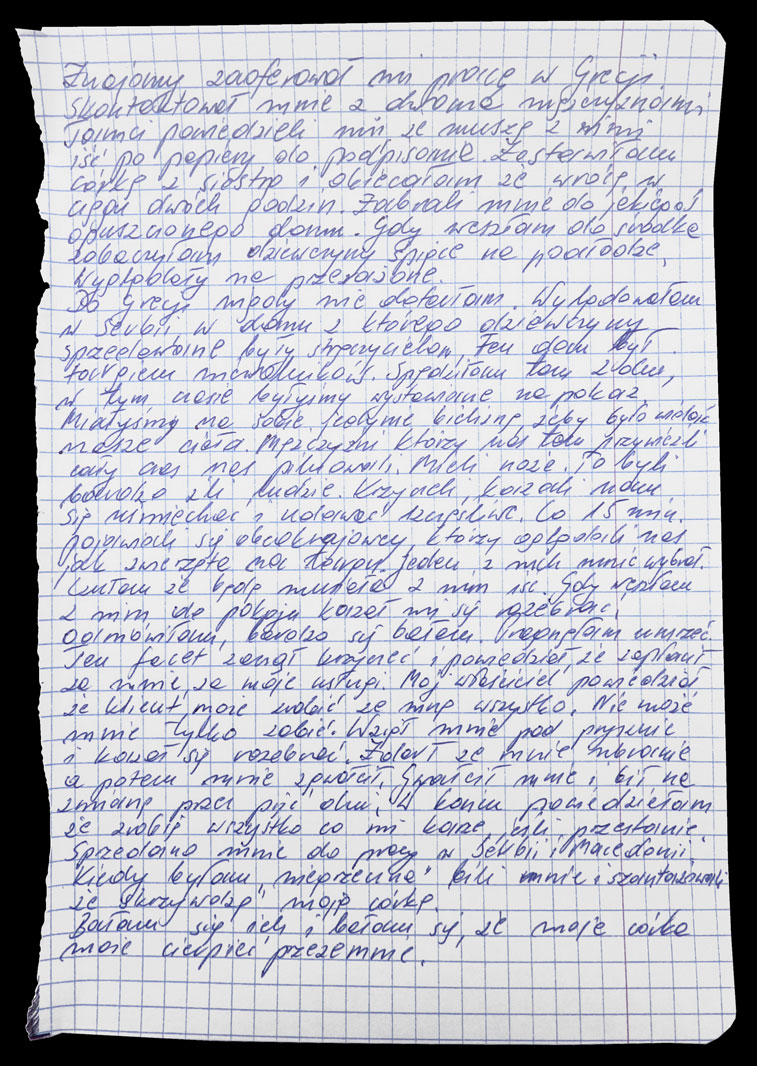 Znajomy zaoferował mi pracę w Grecji
Skontaktował mnie z dwoma mężczyznami
Tamci powiedzieli mi że muszę z nimi
iść po papiery do podpisania. Zostawiłam
córkę z siostrą i obiecałam że wrócę w
ciągu dwóch godzin. Zabrali mnie do jakiegoś
opuszczonego domu. Gdy weszłam do środka
zobaczyłam dziewczyny śpiące na podłodze,
Wyglądały na przerażone
Do Grecji nigdy nie dotarłam. Wylądowałam
w Serbii w domu z którego dziewczyny
sprzedawane były stręczycielom. Ten dom był
targiem niewolników. Spędziłam tam 2 dni,
w tym czasie byłyśmy wystawiane na pokaz
Miałyśmy na sobie jedynie bieliznę żeby było widać
nasze ciała. Mężczyźni którzy nas tam przywieźli
cały czas nas pilnowali. Mieli noże. To byli
bardzo źli ludzie. Krzyczeli, kazali nam
się uśmiechać i udawać szczęśliwe. Co 15 min.
pojawiali się obcokrajowcy którzy oglądali nas
jak zwierzęta na targu. jeden z nich mnie wybrał.
Czułam że będę musiała z nim iść. Gdy weszłam
z nim do pokoju kazał mi się rozebrać.
Odmówiłam, bardzo się bałam. Pragnęłam umrzeć
Ten facet zaczął krzyczeć i powiedział, że zapłacił
za mnie, za moje usługi. Mój właściciel powiedział
że klient może zrobić ze mną wszystko. Nie może
mnie tylko zabić. Wziął mnie pod prysznic
i kazał się rozebrać. Zdarł ze mnie ubranie
a potem mnie zgwałcił. Gwałcił mnie i bił na
zmianę przez pięć dni. W końcu powiedziałam
że zrobię wszystko co mi każe jeśli przestanie.
Sprzedano mnie do pracy w Serbii i Macedonii
Kiedy byłam „niegrzeczna" bili mnie i szantażowali
że skrzywdzą moją córkę.
Bałam się ich i bałam się, że moja córka
może cierpieć przezemnie.